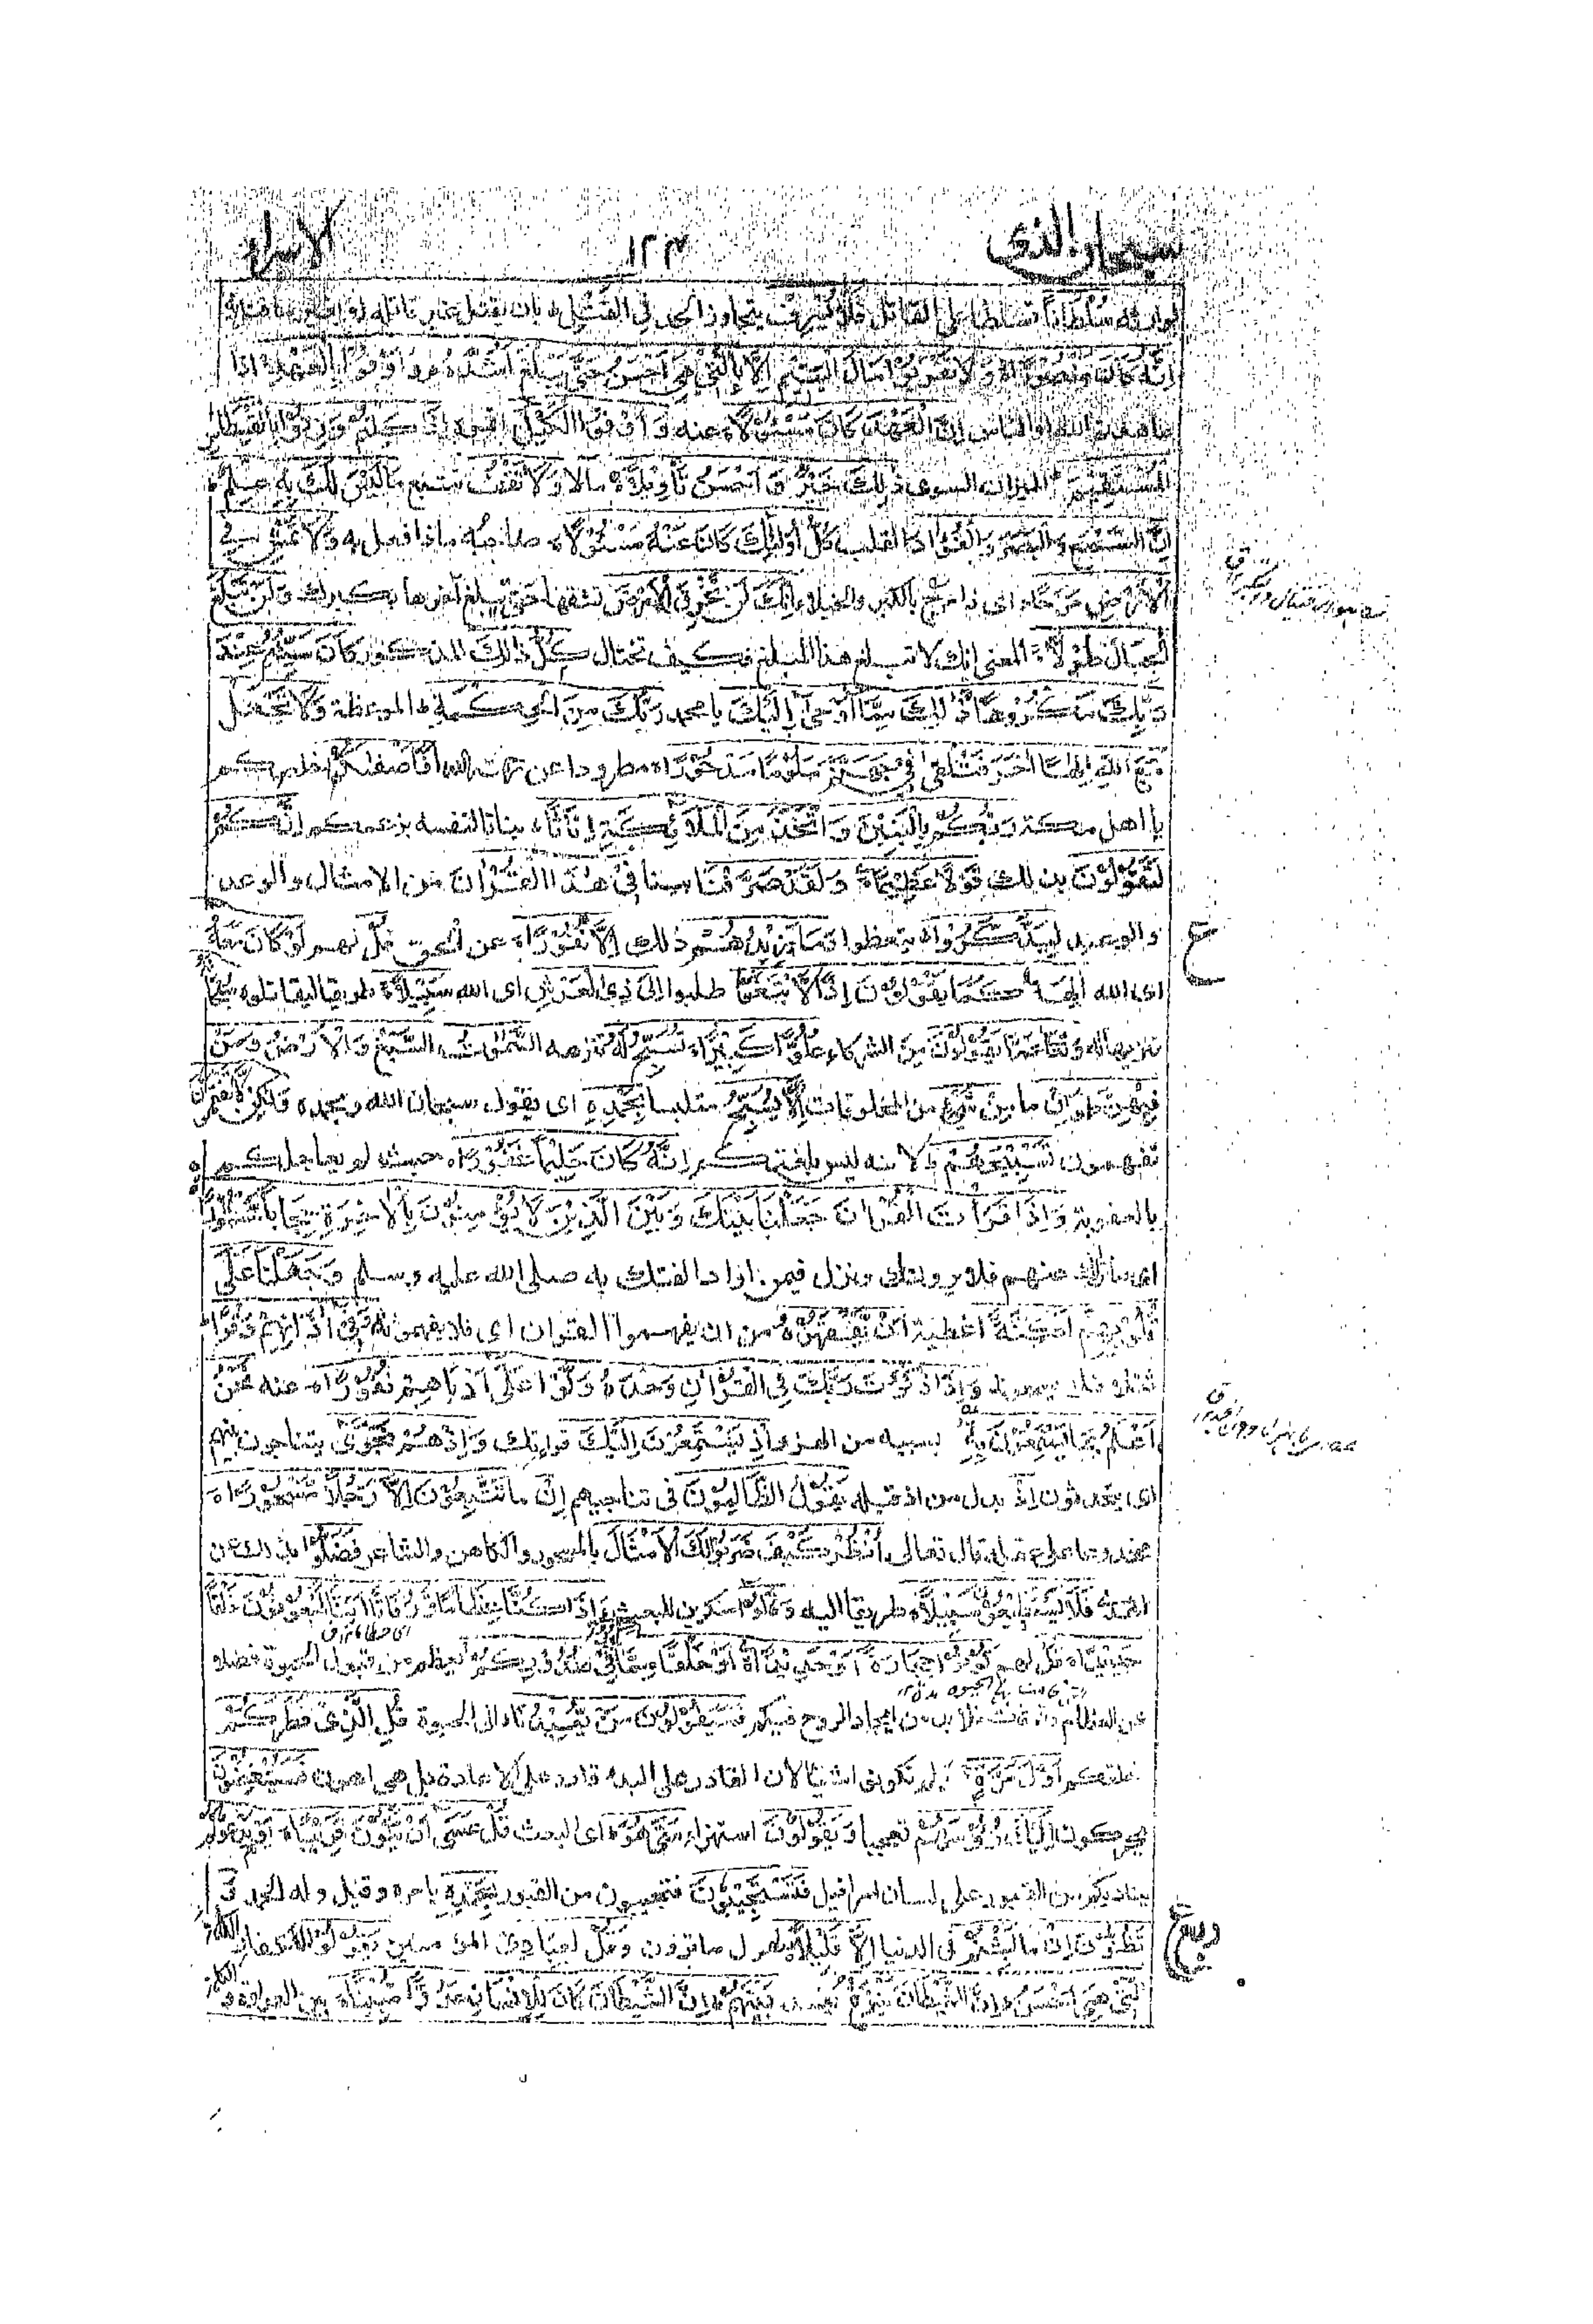 سبحان الذی
١٢٣
الاسراء
لوارثه سُلْطَاناً تسلطا على القاتل فَلَا يُسْرِفْ يتجاوز الحد فِي الْقَتْلِ بان يقتل غير قاتله
اِنَّهُ كَانَ مَنْصُوْرًا وَلَا تَقْرَبُوْا مَالَ الْيَتِيْمِ اِلَّا بِالَّتِيْ هِيَ اَحْسَنُ حَتّٰى يَبْلُغَ اَشُدَّهُ وَاَوْفُوْا بِالْعَهْدِ اذا
عاهدتم الله او الناس اِنَّ الْعَهْدَ كَانَ مَسْئُوْلًا عنه وَاَوْفُوا الْكَيْلَ اتموه اِذَا كِلْتُمْ وَزِنُوْا بِالْقِسْطَاسِ
الْمُسْتَقِيْمِ الميزان السوى ذٰلِكَ خَيْرٌ وَّاَحْسَنُ تَأْوِيْلًا مالا وَلَا تَقْفُ تتبع مَا لَيْسَ لَكَ بِهٖ عِلْمٌ
اِنَّ السَّمْعَ وَالْبَصَرَ وَالْفُؤَادَ القلب كُلُّ اُولٰئِكَ كَانَ عَنْهُ مَسْئُوْلًا صاحبه ماذا فعل به وَلَا تَمْشِ فِي
الْاَرْضِ مَرَحًا اى ذا مرح بالكبر والخيلاء اِنَّكَ لَنْ تَخْرِقَ الْاَرْضَ تشقها حتى تبلغ اخرها بكبرك وَلَنْ تَبْلُغَ
الْجِبَالَ طُوْلًا المعنى انك لا تبلغ هذا المبلغ فكيف تختال كُلُّ ذٰلِكَ المذكور كَانَ سَيِّئُهُ عِنْدَ
رَبِّكَ مَكْرُوْهًا ذٰلِكَ مِمَّا اَوْحٰى اِلَيْكَ يا محمد رَبُّكَ مِنَ الْحِكْمَةِ الموعظة وَلَا تَجْعَلْ
مَعَ اللّٰهِ اِلٰهًا اٰخَرَ فَتُلْقٰى فِيْ جَهَنَّمَ مَلُوْمًا مَّدْحُوْرًا مطرودا عن رحمة الله اَفَاَصْفٰىكُمْ اخلصكم
يا اهل مكة رَبُّكُمْ بِالْبَنِيْنَ وَاتَّخَذَ مِنَ الْمَلٰئِكَةِ اِنَاثًا بناتا لنفسه بزعمكم اِنَّكُمْ
لَتَقُوْلُوْنَ بذلك قَوْلًا عَظِيْمًا وَلَقَدْ صَرَّفْنَا بينا فِيْ هٰذَا الْقُرْاٰنِ من الامثال والوعد
والوعيد لِيَذَّكَّرُوْا يتعظوا وَمَا يَزِيْدُهُمْ ذلك اِلَّا نُفُوْرًا عن الحق قُلْ لهم لَوْ كَانَ مَعَهٗ
اى الله اٰلِهَةٌ كَمَا يَقُوْلُوْنَ اِذًا لَّابْتَغَوْا طلبوا اِلٰى ذِي الْعَرْشِ اى الله سَبِيْلًا طريقا ليقاتلوه سُبْحٰنَهٗ
تنزيها له وَتَعَالٰى عَمَّا يَقُوْلُوْنَ من الشركاء عُلُوًّا كَبِيْرًا تُسَبِّحُ لَهُ تنزهه السَّمٰوٰتُ السَّبْعُ وَالْاَرْضُ وَمَنْ
فِيْهِنَّ وَاِنْ ما مِّنْ شَيْءٍ من المخلوقات اِلَّا يُسَبِّحُ متلبسا بِحَمْدِهٖ اى يقول سبحان الله وبحمده وَلٰكِنْ لَّا تَفْقَهُوْنَ
تفهمون تَسْبِيْحَهُمْ لانه ليس بلغتكم اِنَّهُ كَانَ حَلِيْمًا غَفُوْرًا حيث لم يعاجلكم
بالعقوبة وَاِذَا قَرَأْتَ الْقُرْاٰنَ جَعَلْنَا بَيْنَكَ وَبَيْنَ الَّذِيْنَ لَا يُؤْمِنُوْنَ بِالْاٰخِرَةِ حِجَابًا مَّسْتُوْرًا
اى ساترا لك عنهم فلا يرونك ونزل فيمن اراد الفتك به صلى الله عليه وسلم وَجَعَلْنَا عَلٰى
قُلُوْبِهِمْ اَكِنَّةً اغطية اَنْ يَّفْقَهُوْهُ من ان يفهموا القران اى فلا يفهمونه وَفِيْ اٰذَانِهِمْ وَقْرًا
ثقلا فلا يسمعونه وَاِذَا ذَكَرْتَ رَبَّكَ فِي الْقُرْاٰنِ وَحْدَهُ وَلَّوْا عَلٰى اَدْبَارِهِمْ نُفُوْرًا عنه نَحْنُ
اَعْلَمُ بِمَا يَسْتَمِعُوْنَ بِهٖ بسببه من الهزء اِذْ يَسْتَمِعُوْنَ اِلَيْكَ قراءتك وَاِذْ هُمْ نَجْوٰى يتناجون بينهم
اى يتحدثون اِذْ بدل من اذ قبله يَقُوْلُ الظّٰلِمُوْنَ فى تناجيهم اِنْ ما تَتَّبِعُوْنَ اِلَّا رَجُلًا مَّسْحُوْرًا
مخدوعا مغلوبا على عقله قال تعالى اُنْظُرْ كَيْفَ ضَرَبُوْا لَكَ الْاَمْثَالَ بالمسحور والكاهن والشاعر فَضَلُّوْا بذلك عن
الهدى فَلَا يَسْتَطِيْعُوْنَ سَبِيْلًا طريقا اليه وَقَالُوْا منكرين للبعث ءَاِذَا كُنَّا عِظَامًا وَّرُفَاتًا ءَاِنَّا لَمَبْعُوْثُوْنَ خَلْقًا
جَدِيْدًا قُلْ لهم كُوْنُوْا حِجَارَةً اَوْ حَدِيْدًا اَوْ خَلْقًا مِّمَّا يَكْبُرُ فِيْ صُدُوْرِكُمْ يعظم عن قبول الحيوة فضلا
عن العظام والرفات فلا بد من ايجاد الروح فيكم فَسَيَقُوْلُوْنَ مَنْ يُّعِيْدُنَا الى الحيوة قُلِ الَّذِيْ فَطَرَكُمْ
خلقكم اَوَّلَ مَرَّةٍ ولم تكونوا شيئا لان القادر على البدء قادر على الاعادة بل هى اهون فَسَيُنْغِضُوْنَ
يحركون اِلَيْكَ رُءُوْسَهُمْ تعجبا وَيَقُوْلُوْنَ استهزاء مَتٰى هُوَ اى البعث قُلْ عَسٰى اَنْ يَّكُوْنَ قَرِيْبًا يَوْمَ يَدْعُوْكُمْ
يناديكم من القبور على لسان اسرافيل فَتَسْتَجِيْبُوْنَ فتجيبون من القبور بِحَمْدِهٖ بامره وقيل وله الحمد وَ
تَظُنُّوْنَ اِنْ ما لَّبِثْتُمْ فى الدنيا اِلَّا قَلِيْلًا لهول ما ترون وَقُلْ لِّعِبَادِيْ المؤمنين يَقُوْلُوْا للكفار الكلمة
الَّتِيْ هِيَ اَحْسَنُ اِنَّ الشَّيْطٰنَ يَنْزَغُ يفسد بَيْنَهُمْ اِنَّ الشَّيْطٰنَ كَانَ لِلْاِنْسَانِ عَدُوًّا مُّبِيْنًا بين العداوة و
ع
ربع